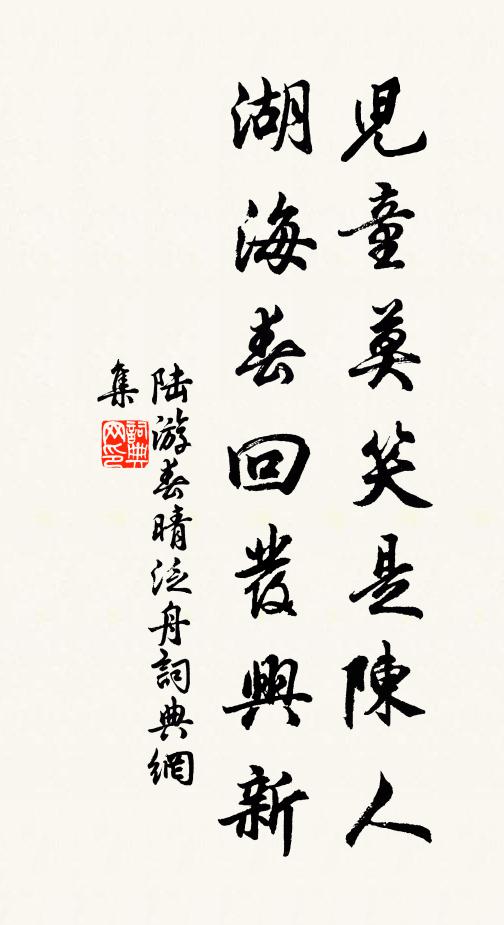 兒童莫笑是陳人
湖海春回發興新
陸游春晴泛舟詞典網
集
詞典
网印